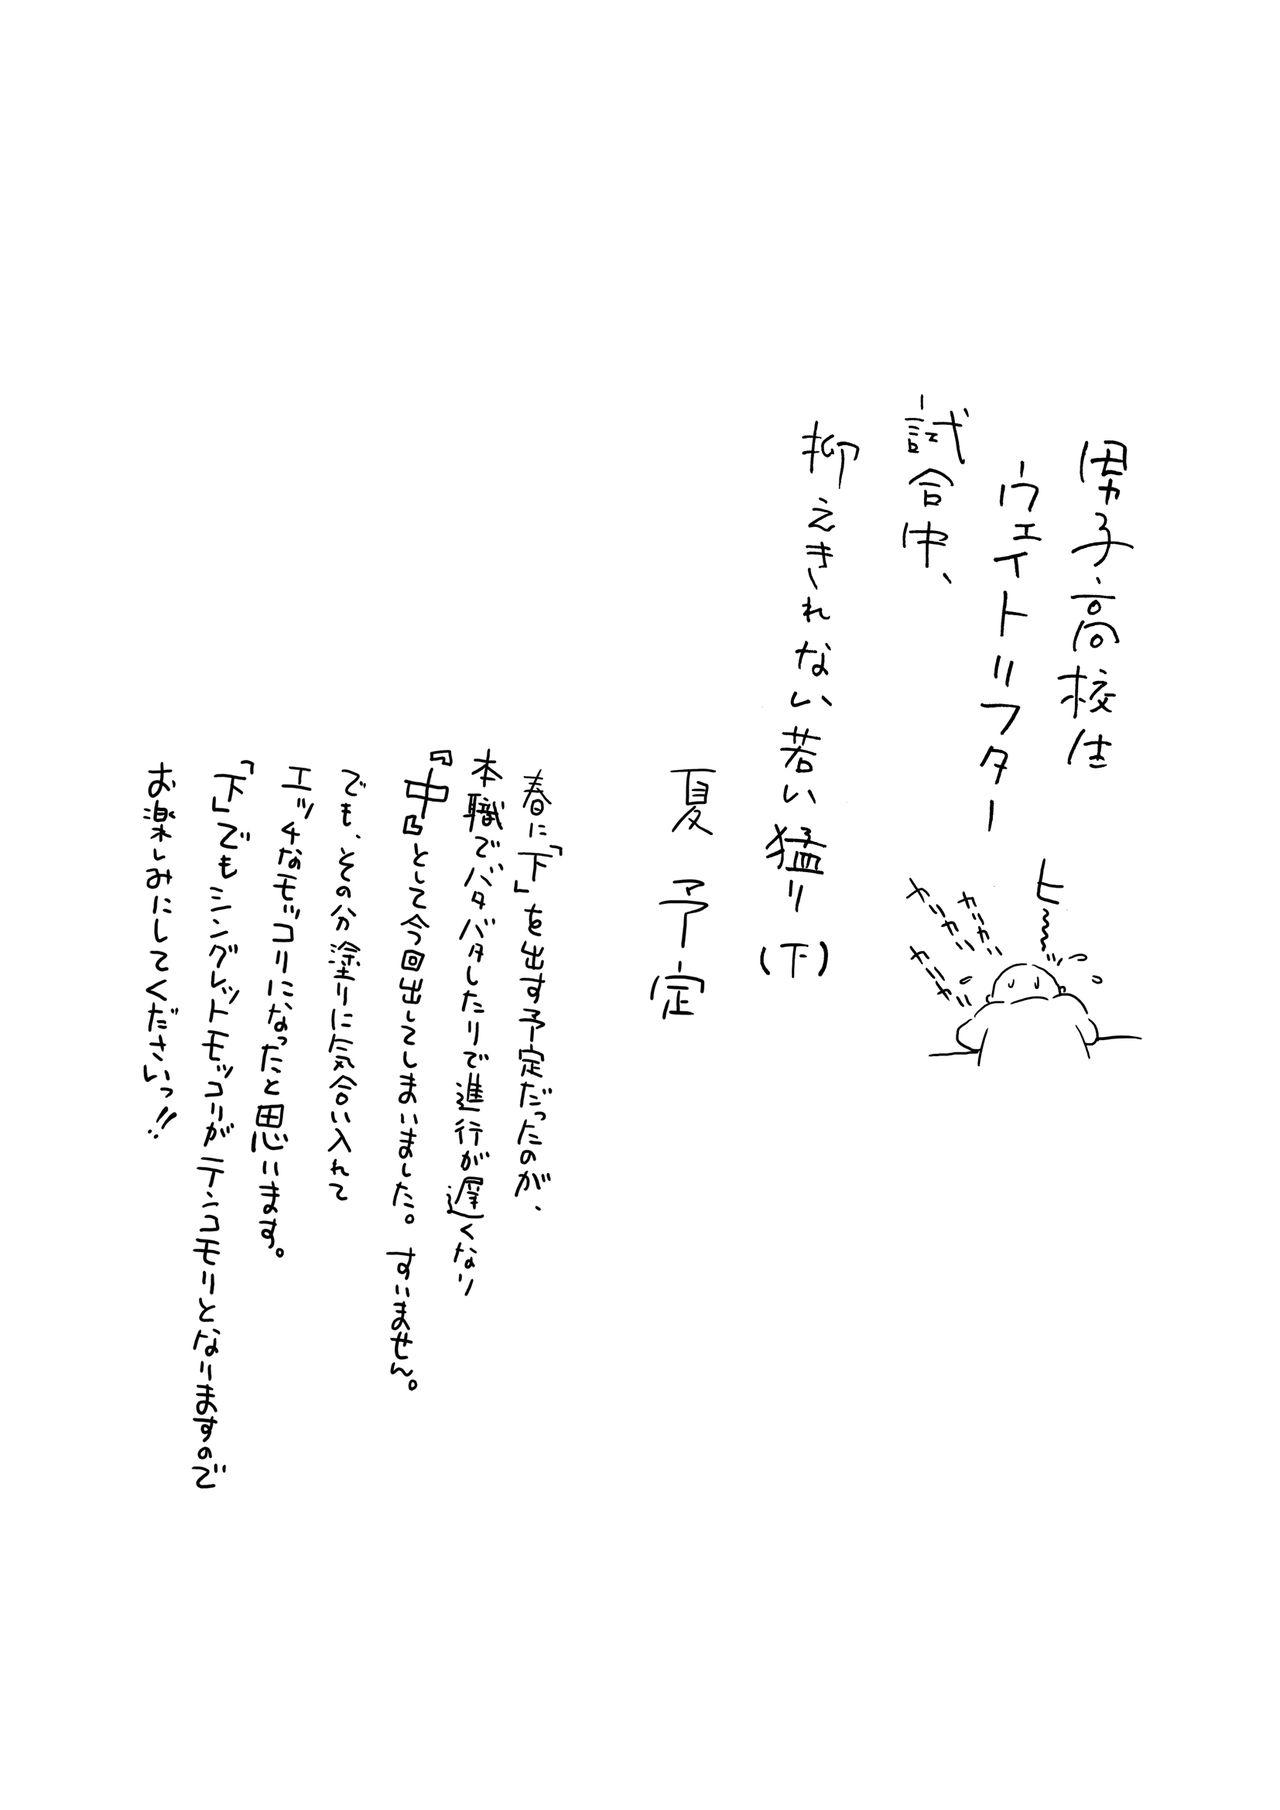 男子高校生
ウェイトリフター
試合中、
抑えきれない若い猛り(下)
夏 予定
ヒ〜〜
カリカリ
カリカリ
カリカリ
春に「下」を出す予定だったのが、
本職でバタバタしたりで進行が遅くなり
『中』として今回出してしまいました。すいません。
でも、その分塗りに気合い入れて
エッチなモッコリになったと思います。
「下」でもシングレットモッコリがテンコモリとなりますので
お楽しみにしてくださいっ!!